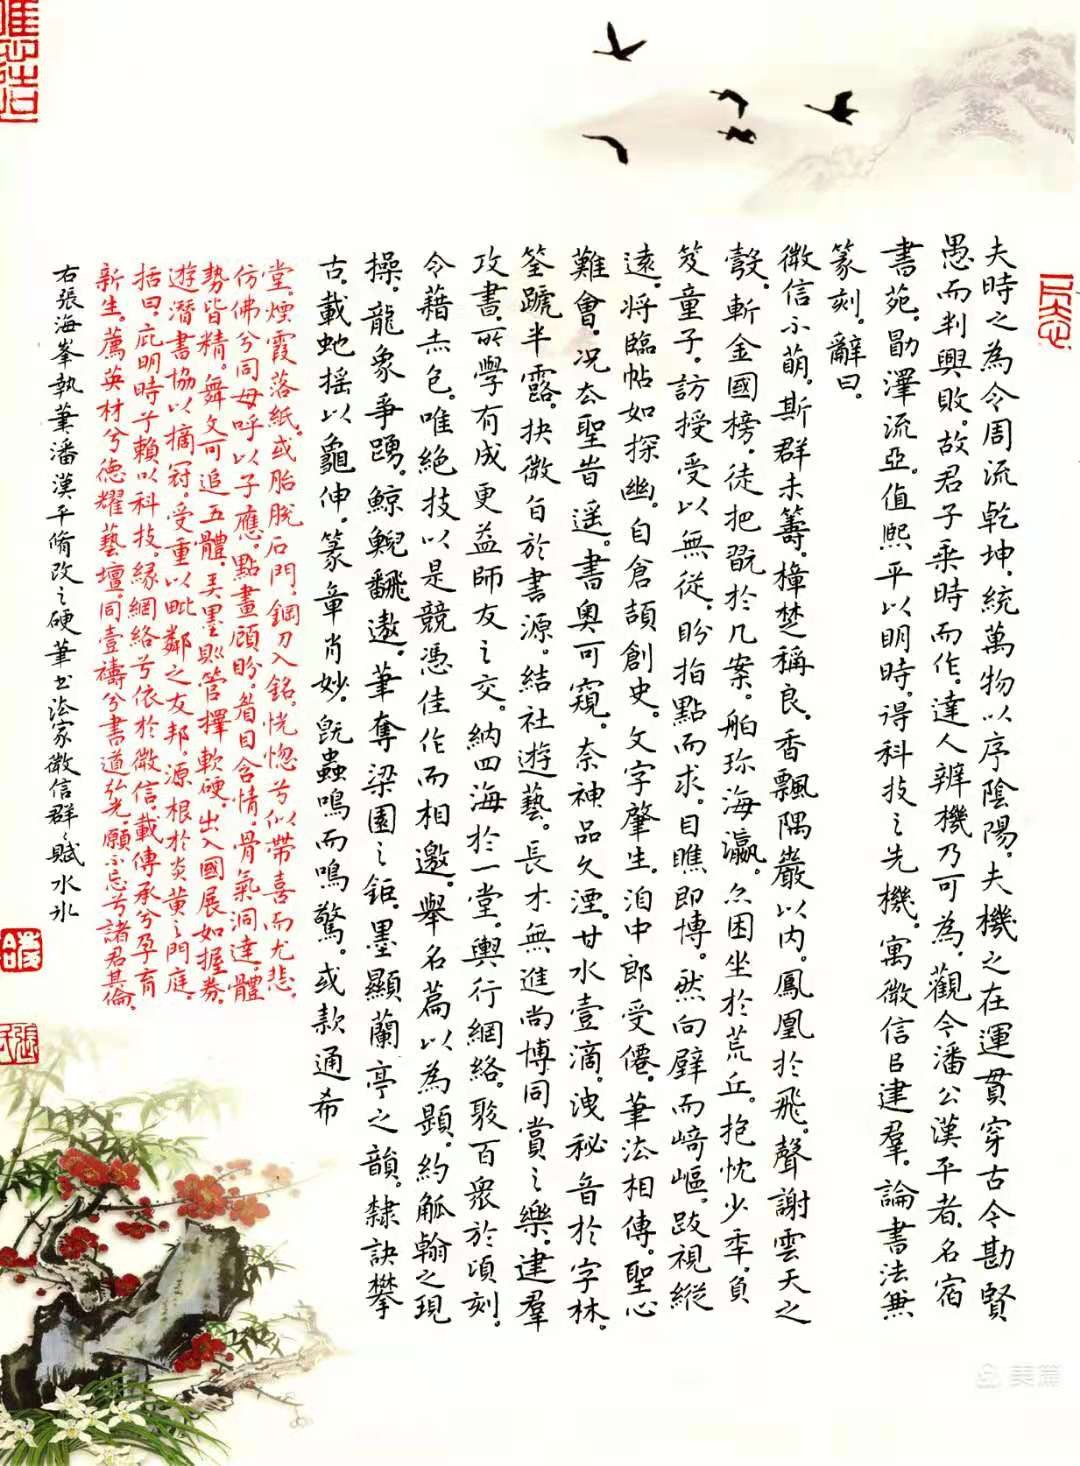 夫時之為令周流乾坤。統萬物以序陰陽。夫機之在運貫穿古今勘賢
愚而判興敗。故君子乘時而作。達人辨機乃可為。觀今潘公漢平者。名宿
書苑。勖澤流亞。值熙平以明時。得科技之先機。寓微信以建羣。論書法兼
篆刻。辭曰。
微信不萌。斯群未籌。樟埜稱良。香飄隅巖以内。鳳凰於飛。聲謝雲天之
斲金國榜。徒把翫於几案。舶珎海瀛。亦困坐於荒丘。抱忱少年。負
笈童子。訪授受以無從。盼指點而求。目瞧即博。然向壁而崎嶇。跂視縱
遠。將臨帖如探幽。自倉頡創史。文字肇生。洎中郎受僊。筆法相傳。聖心
難會。况去聖昔遥。書奧可窺。奈神品久湮。甘水壹滴。洩秘音於字林。
筌蹏半露。抉微旨於書源。結社遊藝。長木無進尚博同賞之樂。建羣
攻書。所學有成更益師友之交。納四海於一堂。輿行網絡。聚百衆於頃刻。
令藉赤色。唯絶技以是競憑佳作而相邀。舉名篇以為題。約觚翰之現
操。龍象爭踴。鯨鯢翻遨。筆奪梁園之鉅。墨顯蘭亭之韻。隸訣攀
古。載虵摇以龜伸。篆章肖妙。既蟲鳴而鳴驚。或款通希
堂。煙霞落紙。或胎脱石門。鋼刀入銘。恍惚兮似帶喜而尤悲。
仿佛兮同母呼以子應。點畫顧盼。眉目含情。骨氣洞達。體
勢皆精。舞文可追五體。美墨則管擇軟硬。出入國展如握券。
遊潛書協以摘冠。受重以毗鄰之友邦。源根於炎黄之門庭。
括曰。庇明時予賴以科技。緣網絡兮依於微信。載傳承兮孕育
新生。薦英材兮德耀藝壇。同壹禱兮書道弘光。願不忘兮諸君其倫。
右張海峯執筆潘漢平脩改之硬筆书法家微信群之賦 水冰
美篇